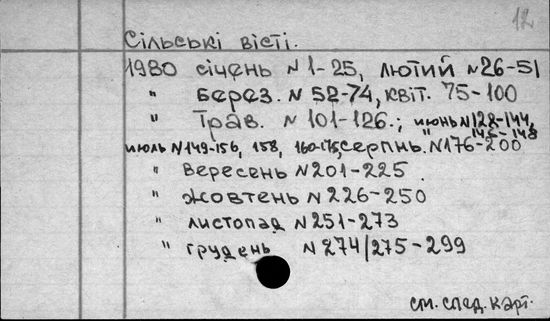 12
Сільські вісті.
1980 січень N 1-25, лютий N 26-51
" Берез. N 52-74, квіт. 75-100
" Трав. N 101-126.; июнь N 128-144,
" 146-148
июль N 149-156, 158, 160-175, серпнь. N 176-200
" Вересень N 201-225
" жовтень N 226-250
" листопад N 251-273
" грудень N 274/275-299
см. след. карт.